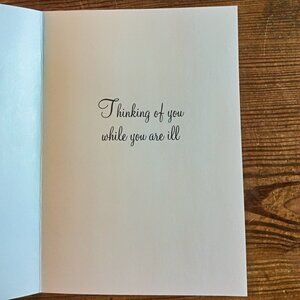 Thinking of you
while you are ill